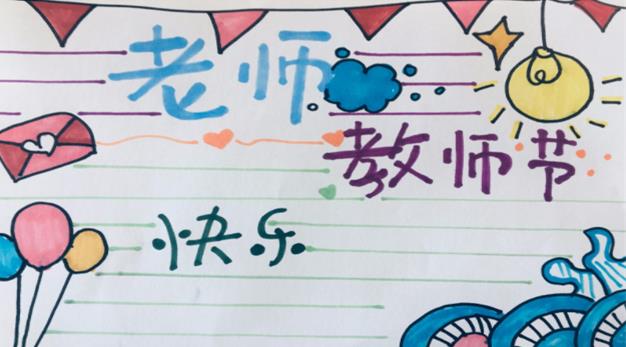 老师
教师节
快乐